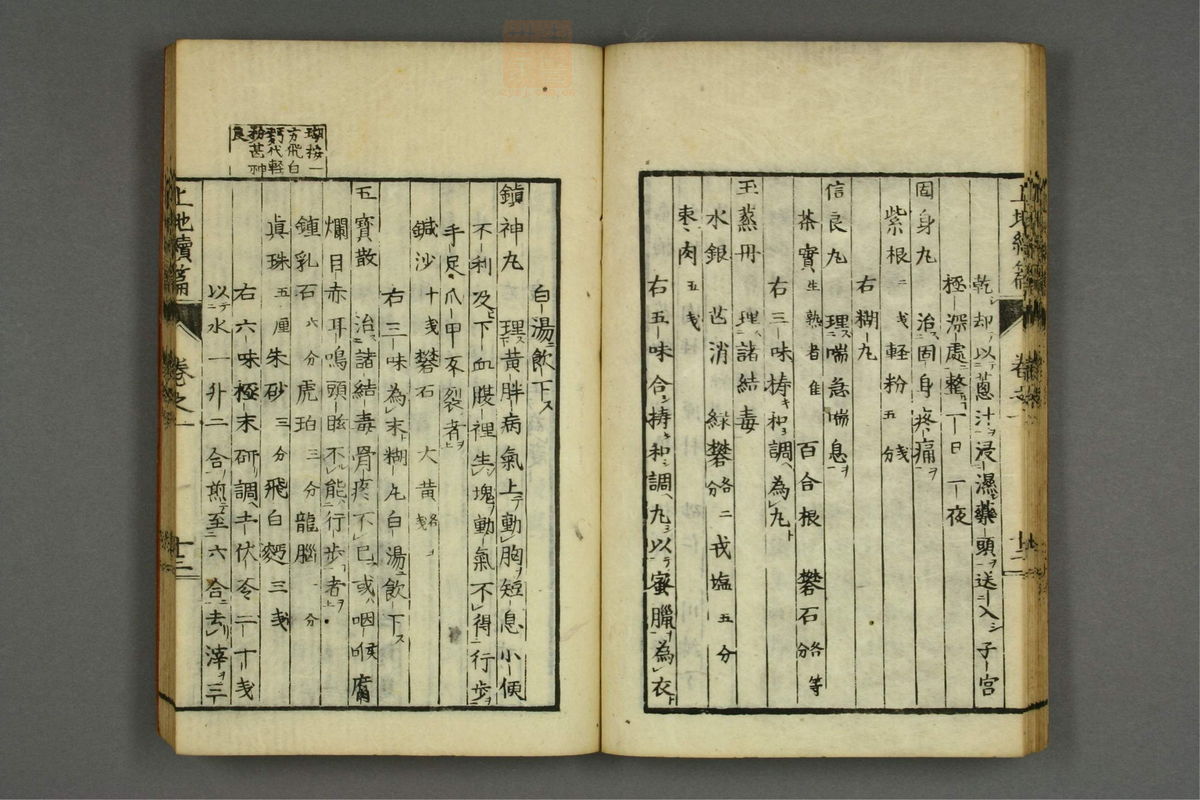 乾却以葱汁浸濕藥頭送入子宮
極深處整一日一夜
固身丸 治固身疼痛
紫根 二戔 軽粉 五分
右糊丸
信良丸 理喘急喘息
茶實 生熟者隹 百合根 礬石 各等分
右三味擣和調為丸
玉蒸丹 理諸結毒
水銀 芒消 緑礬 各二分 戎塩 五分
枣肉 五戔
右五味合擣和調丸以蜜臘為衣
卷之一
十二
白湯飲下
鎮神丸 理黄胖病氣上動胸短息小便
不利及下血腹裡生塊動氣不得行歩
手足爪甲反裂者
鍼沙 十戔 礬石 大黄 各戔
右三味為末糊丸白湯飲下
五寳散 治諸結毒骨疼不已或咽喉腐
爛目赤耳鳴頭眩不能行歩者
鍾乳石 六分 虎珀 三分 龍腦 一分
眞珠 五厘 朱砂 三分 飛白麪 三戔
右六味極末研調土伏苓二十戔
以水一升二合煎至六合去滓三
瑚按一
方飛白
麪代軽
粉甚神
良
上池續篇
卷之一
十三